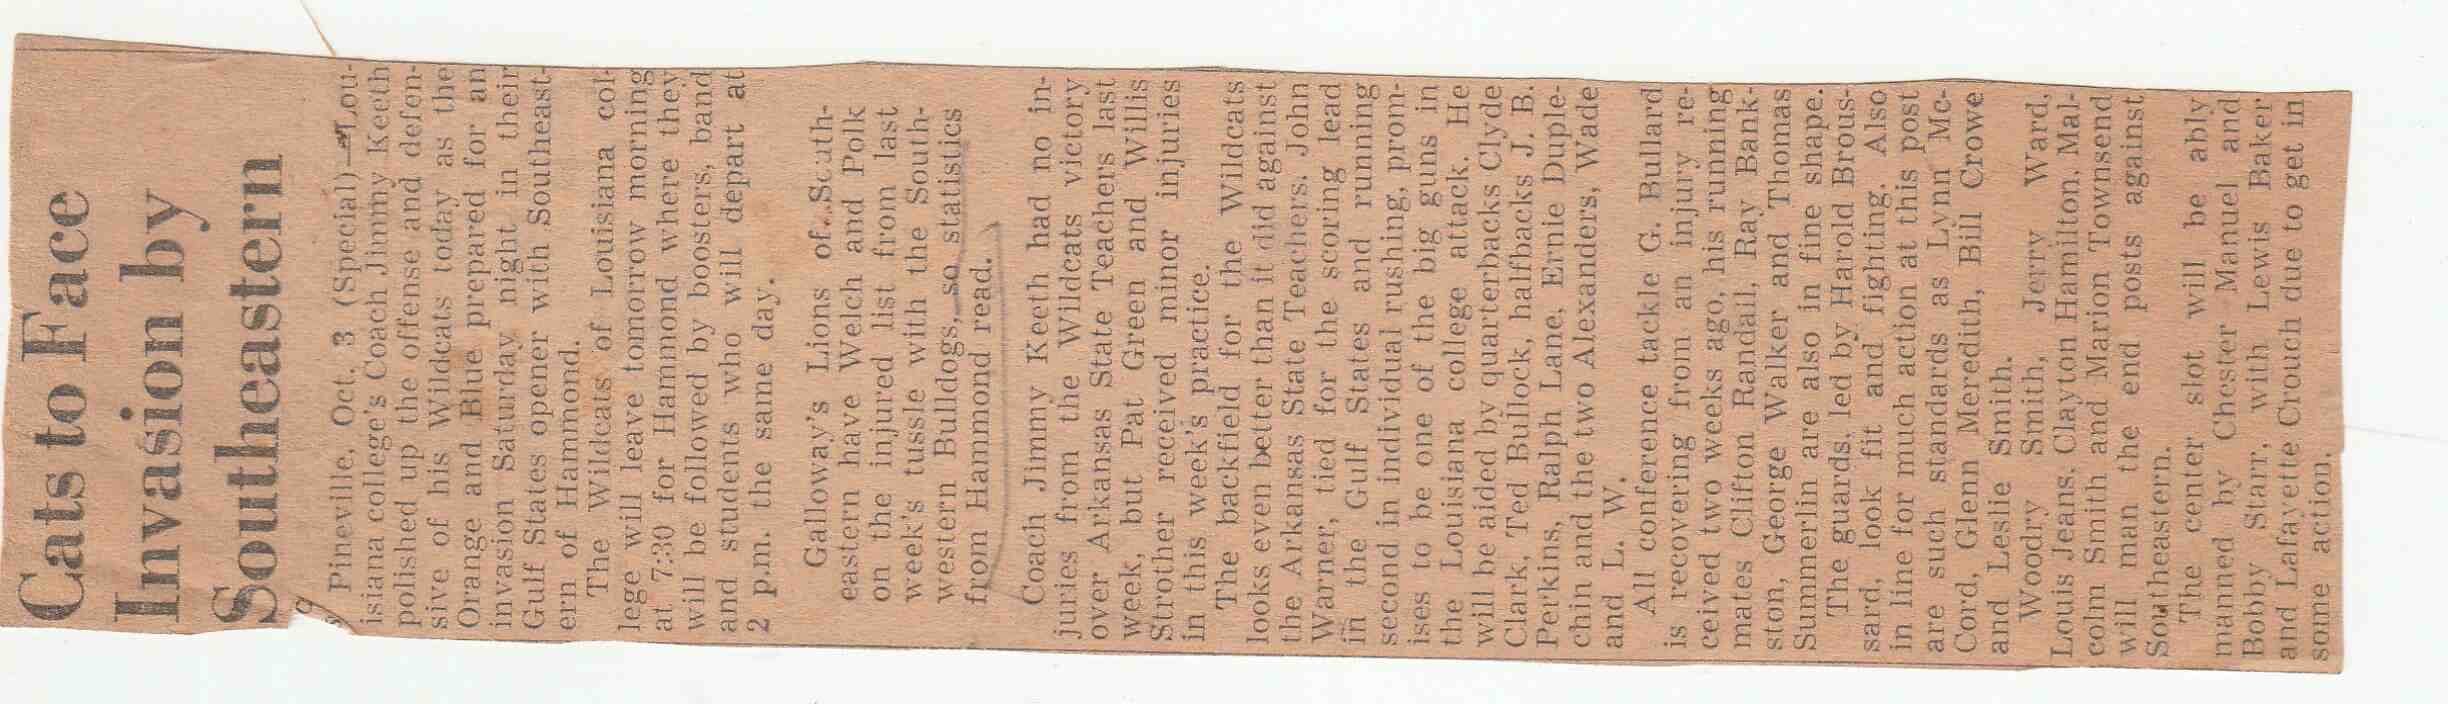 Cats to Face
Invasion by
Southeastern
Pineville, Oct. 3 (Special)—Lou-
isiana college's Coach Jimmy Keeth
polished up the offense and defen-
sive of his Wildcats today as the
Orange and Blue prepared for an
invasion Saturday night in their
Gulf States opener with Southeast-
ern of Hammond.
The Wildcats of Louisiana col-
lege will leave tomorrow morning
at 7:30 for Hammond where they
will be followed by boosters, band
and students who will depart at
2 p.m. the same day.
Galloway's Lions of South-
eastern have Welch and Polk
on the injured list from last
week's tussle with the South-
western Bulldogs, so statistics
from Hammond read.
Coach Jimmy Keeth had no in-
juries from the Wildcats victory
over Arkansas State Teachers last
week, but Pat Green and Willis
Strother received minor injuries
in this week's practice.
The backfield for the Wildcats
looks even better than it did against
the Arkansas State Teachers. John
Warner, tied for the scoring lead
in the Gulf States and running
second in individual rushing, prom-
ises to be one of the big guns in
the Louisiana college attack. He
will be aided by quarterbacks Clyde
Clark, Ted Bullock, halfbacks J. B.
Perkins, Ralph Lane, Ernie Duple-
chin and the two Alexanders, Wade
and L. W.
All conference tackle G. Bullard
is recovering from an injury re-
ceived two weeks ago, his running
mates Clifton Randall, Ray Bank-
ston, George Walker and Thomas
Summerlin are also in fine shape.
The guards, led by Harold Brous-
sard, look fit and fighting. Also
in line for much action at this post
are such standards as Lynn Mc-
Cord, Glenn Meredith, Bill Crowe
and Leslie Smith.
Woodry Smith, Jerry Ward,
Louis Jeans, Clayton Hamilton, Mal-
colm Smith and Marion Townsend
will man the end posts against
Southeastern.
The center slot will be ably
manned by Chester Manuel and
Bobby Starr, with Lewis Baker
and Lafayette Crouch due to get in
some action.